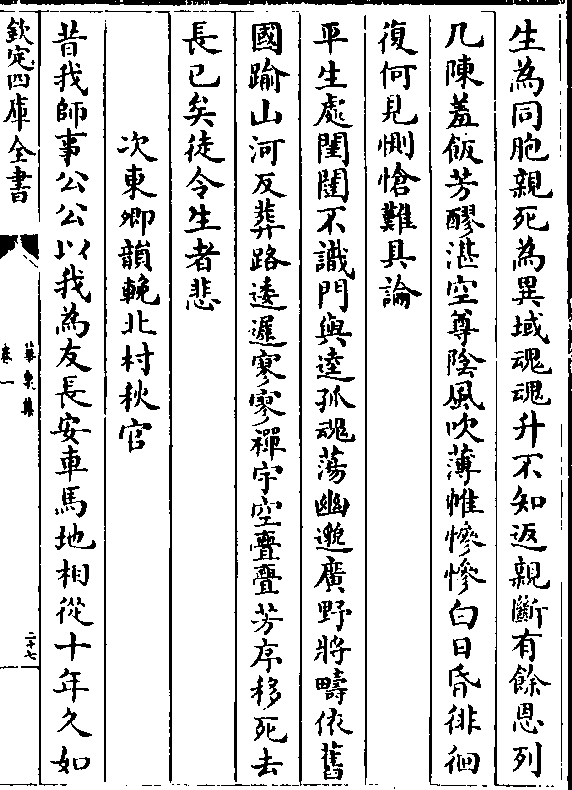 生為同胞親死為異域魂魂升不知返親斷有餘恩列
几陳蓋飯芳醪湛空尊陰風吹薄帷慘慘白日昏徘徊
復何見惻愴難具論
平生處閨闥不識門與逵孤魂蕩幽邈廣野將疇依舊
國踰山河反葬路逶遲寥寥禪宇空亹亹芳序移死去
長已矣徒令生者悲
次東卿韻輓北村秋官
昔我師事公公以我為友長安車馬地相從十年久如
欽定四庫全書
華泉集
卷一
二十七